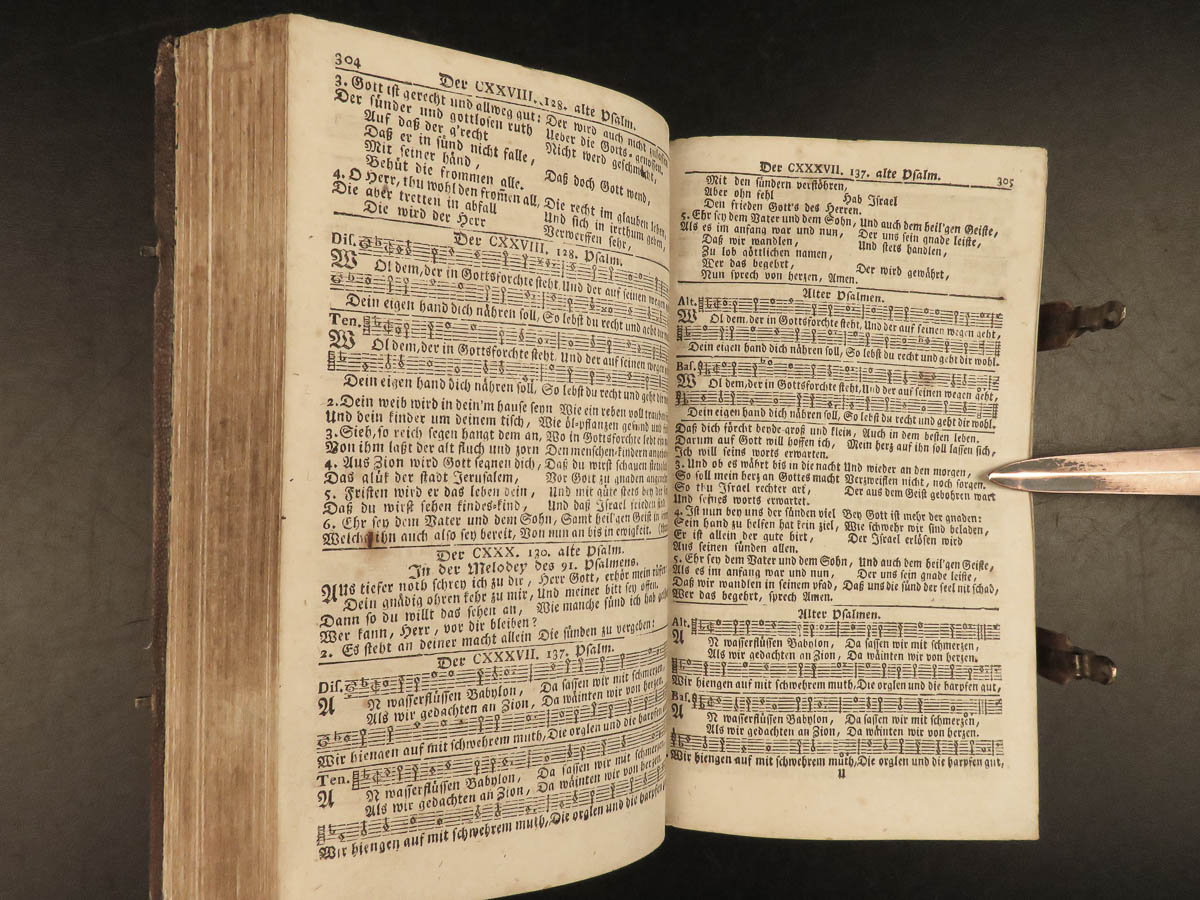 304
Der CXXVIII. 128. alte Psalm.
3. Gott ist gerecht und allweg gut: Der wird auch nicht
Der sünder und gottlosen ruth Ueber die Gotts-genossen.
Auf daß der g'recht Nicht werd geschmächt,
Daß er in sünd nicht falle,
Mit seiner händ, Daß doch Gott wend,
Behüt die frommen alle.
4. O Herr, thu wohl den frommen all, Die recht im glauben leben,
Die aber tretten in abfall Und sich in irrthum geben,
Die wird der Herr Verwerffen sehr,
Der CXXVIII. 128. Psalm.
Dis.
WOl dem, der in Gottsforchte steht, Und der auf seinen wegen
Dein eigen hand dich nähren soll, So lebst du recht und geht dir
Ten.
WOl dem, der in Gottsforchte steht, Und der auf seinen wegen
Dein eigen hand dich nähren soll, So lebst du recht und geht dir
2. Dein weib wird in dein'm hause seyn Wie ein reben voll
Und dein kinder um deinem tisch, Wie öl-pflanzen gesund und
3. Sieh, so reich segen hangt dem an, Wo in Gottsforchte lebt ein
Von ihm laßt der alt fluch und zorn Den menschen-kindern
4. Aus Zion wird Gott segnen dich, Daß du wirst schauen
Das glük der stadt Jerusalem, Vor Gott zu gnaden
5. Fristen wird er das leben dein, Und mit güte stets bey dir
Daß du wirst sehen kindes-kind, Und daß Israel frieden
6. Ehr sey dem Vater und dem Sohn, Samt heil'gen Geist in
Welcher ihn auch also sey bereit, Von nun an bis in ewigkeit.
Der CXXX. 130. alte Psalm.
In der Melodey des 91. Psalmens.
AUs tiefer noth schrey ich zu dir, Herr Gott, erhör mein
Dein gnädig ohren kehr zu mir, Und meiner bitt sey offen.
Dann so du willt das sehen an, Wie manche sünd ich hab
Wer kann, Herr, vor dir bleiben?
2. Es steht an deiner macht allein Die sünden zu vergeben:
Der CXXXVII. 137. Psalm.
Dis.
AN wasserflüssen Babylon, Da sassen wir mit schmerzen,
Als wir gedachten an Zion, Da wäinten wir von herzen.
Wir hiengen auf mit schwehrem muth, Die orglen und die harpfen
Ten.
AN wasserflüssen Babylon, Da sassen wir mit schmerzen,
Als wir gedachten an Zion, Da wäinten wir von herzen.
Wir hiengen auf mit schwehrem muth, Die orglen und die harpfen
Der CXXXVII. 137. alte Psalm. 305
Mit den sündern verstöhren,
Aber ohn fehl Hab Israel
Den frieden Gott's des Herren.
5. Ehr sey dem Vater und dem Sohn, Und auch dem heil'gen Geiste,
Als es im anfang war und nun, Der uns sein gnade leiste,
Daß wir wandlen, Und stets handlen,
Zu lob göttlichen namen,
Wer das begehrt, Der wird gewährt,
Nun sprech von herzen, Amen.
Alter Psalmen.
Alt.
WOl dem, der in Gottsforchte steht, Und der auf seinen wegen geht,
Dein eigen hand dich nähren soll, So lebst du recht und geht dir wohl.
Bas.
WOl dem, der in Gottsforchte steht, Und der auf seinen wegen geht,
Dein eigen hand dich nähren soll, So lebst du recht und geht dir wohl.
Daß dich förcht beyde groß und klein, Auch in dem besten leben.
Darum auf Gott will hoffen ich, Mein herz auf ihn soll lassen sich,
Ich will seins worts erwarten.
3. Und ob es währt bis in die nacht Und wieder an den morgen,
So soll mein herz an Gottes macht Verzweiflen nicht, noch sorgen.
So thu Israel rechter art, Der aus dem Geist gebohren wart
Und seines worts erwartet.
4. Ist nun bey uns der sünden viel Bey Gott ist mehr der gnaden:
Sein hand zu helfen hat kein ziel, Wie schwehr wir sind beladen,
Er ist allein der gute hirt, Der Israel erlösen wird
Aus seinen sünden allen.
5. Ehr sey dem Vater und dem Sohn, Und auch dem heil'gen Geiste,
Als es im anfang war und nun, Der uns sein gnade leiste,
Daß wir wandlen in seinem pfad, Daß uns die sünd der seel nit schad,
Wer das begehrt, sprech Amen.
Alter Psalmen.
Alt.
AN wasserflüssen Babylon, Da sassen wir mit schmerzen,
Als wir gedachten an Zion, Da wäinten wir von herzen.
Wir hiengen auf mit schwehrem muth, Die orglen und die harpfen gut,
Bas.
AN wasserflüssen Babylon, Da sassen wir mit schmerzen,
Als wir gedachten an Zion, Da wäinten wir von herzen.
Wir hiengen auf mit schwehrem muth, Die orglen und die harpfen gut,
U